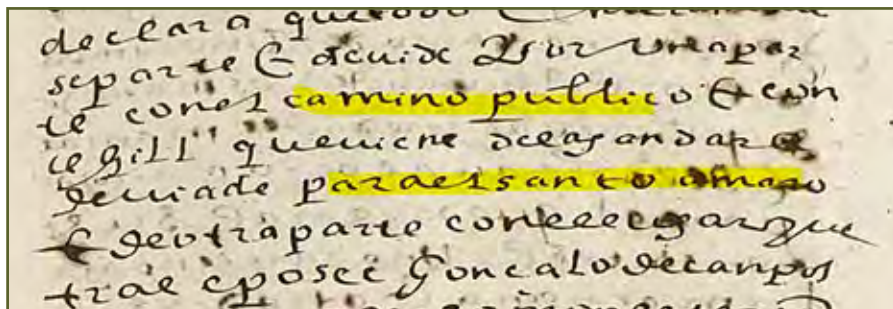 declara que todo
se parte E devide Por una par
te con el camino publico E con
cegill que viene de las andar
de viade para el santo amaro
E de otra parte con el lugar que
trae e posee Goncalo de canpos